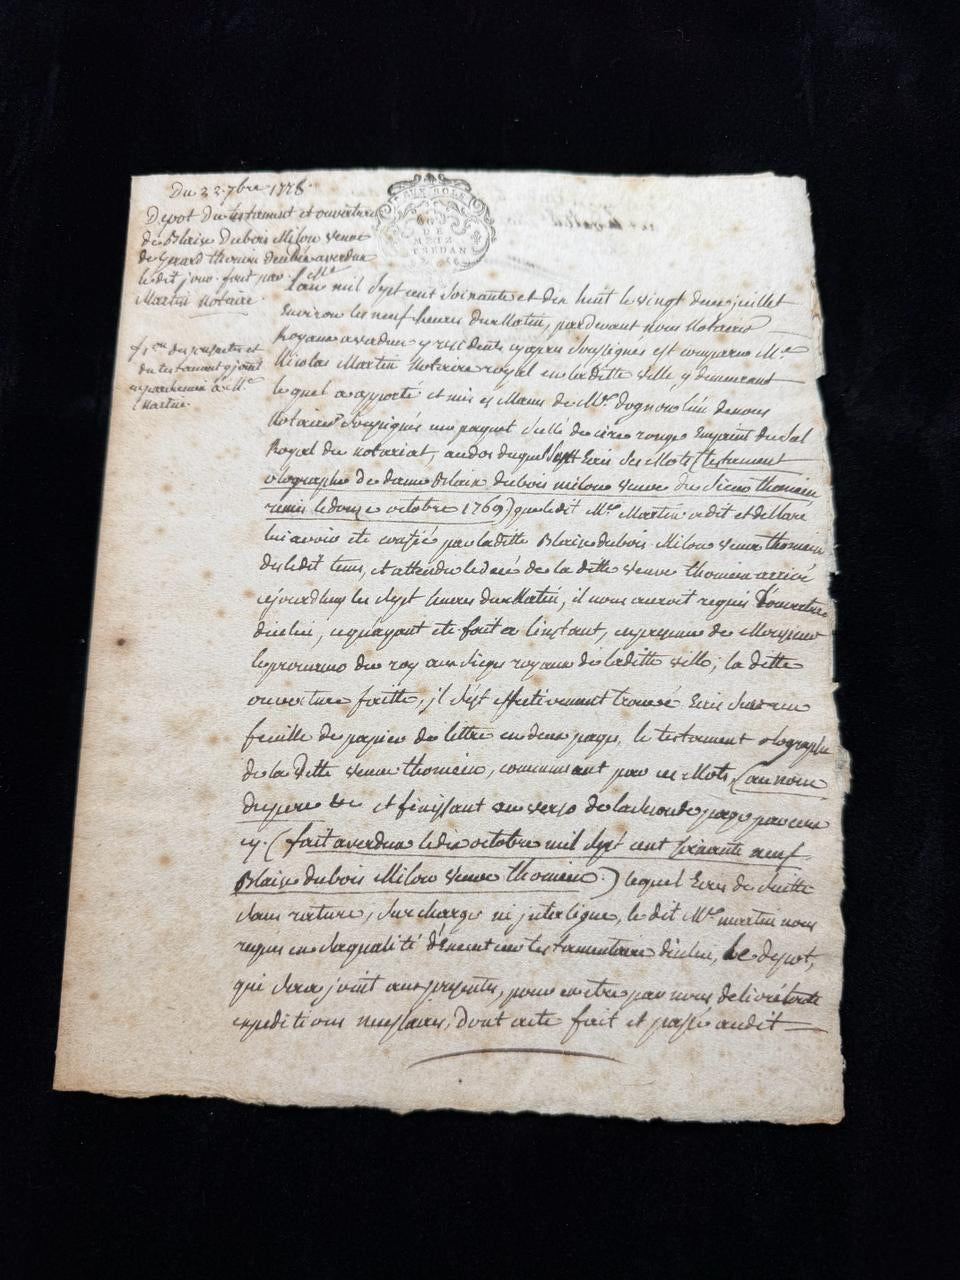 Du 22. 7bre 1778.
Depot du testament et ouverture
de Blaise Dubois Milon veuve
de Gerard Thomin de verdun
le dit jour. fait par Me
Martin Notaire.
du testament y joint
en parchemin a Me
Martin.
SOLS
DE
METZ
SEDAN
L'an mil sept cent soixante et dix huit le vingt deux juillet
Environ les neuf heures du Matin, pardevant nous Notaires
Royaux a verdun y residents cy apres soussignés est comparu Me
Nicolas Martin Notaire royal en la ditte ville y demeurant
lequel a apporté et mis es Mains de Me dognon l'un de nous
Notaires soussignés un paquet scellé de cire rouge Empreint du Scel
Royal du notariat, au dos duquel sont Ecris ces Mots (testament
olographe de dame Blaise dubois milon veuve du Sieur thomin
remis le douze octobre 1769) que ledit Me Martin a dit et declaré
lui avoir été confié par laditte Blaise dubois Milon veuve thomin
des ledit tems, et attendu le decé de la ditte veuve thomin arrivé
cejourdhuy les sept heures du Matin, il nous auroit requis l'ouverture
d'iceluy, ce qu'ayant été fait a l'instant, en presence de Monsieur
le procureur du roy aux sieges royaux de laditte ville; la ditte
ouverture faitte, il s'est effectivement trouvé Ecris sur une
feuille de papier de lettre en deux pages, le testament olographe
de la ditte veuve thomin, commencant par ces Mots, (au nom
du pere &c et finissant au verso de la seconde page par ceux
cy. (fait a verdun le dix octobre mil sept cent soixante neuf
Blaise dubois Milon veuve thomin.) lequel Ecris de suitte
sans rature, surcharge ni interligne, le dit Me martin nous
requis en sa qualité d'Executeur testamentaire d'iceluy, le depot,
qui sera joint aux presentes, pour en etre par nous delivré toute
expeditions necessaires, Dont acte fait et passé audit